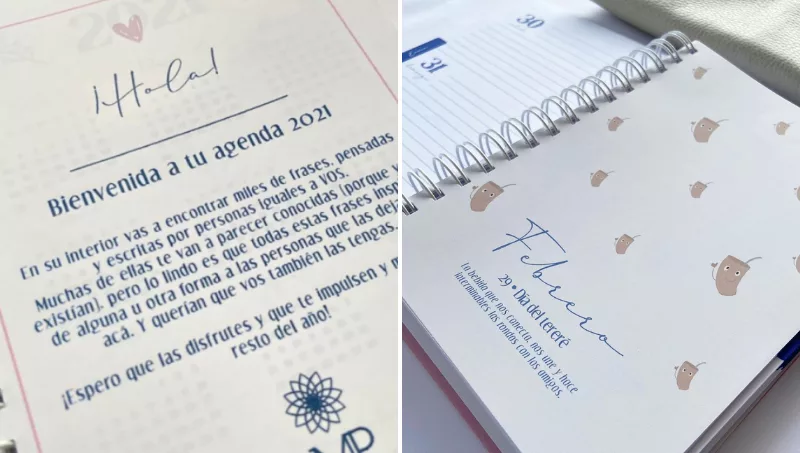 ¡Hola!
Bienvenida a tu agenda 2021
En su interior vas a encontrar miles de frases, pensadas
y escritas por personas iguales a VOS.
Muchas de ellas te van a parecer conocidas (porque y
existían), pero lo lindo es que todas estas frases insp
de alguna u otra forma a las personas que las deja
acá. Y querían que vos también las tengas.
¡Espero que las disfrutes y que te impulsen y m
resto del año!
MD
30
31
Febrero
29 • Día del tereré
La bebida que nos conecta, nos une y hace
interminables las rondas con los amigos.